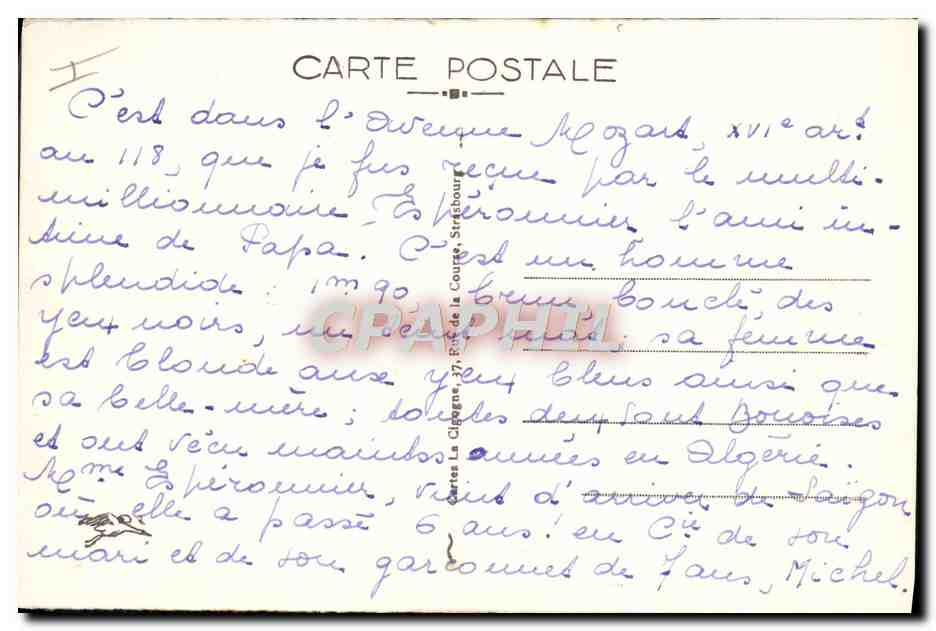 I
CARTE POSTALE
C'est dans l'Avenue Mozart, XVIe art.
au 118, que je fus reçue par le multi-
millionnaire Espéronnier l'ami in-
time de Papa. C'est un homme
splendide : 1m90 brun bouclé, des
yeux noirs, un teint mât; sa femme
est blonde aux yeux bleus ainsi que
sa belle-mère; toutes deux sont Bonoises
et ont vécu maintes années en Algérie.
Mme Espéronnier, vient d'arriver de Saïgon
où elle a passé 6 ans! en Cie de son
mari et de son garçonnet de 7 ans, Michel.
Cartes La Cigogne, 37, Rue de la Course, Strasbourg
CPAPHIL